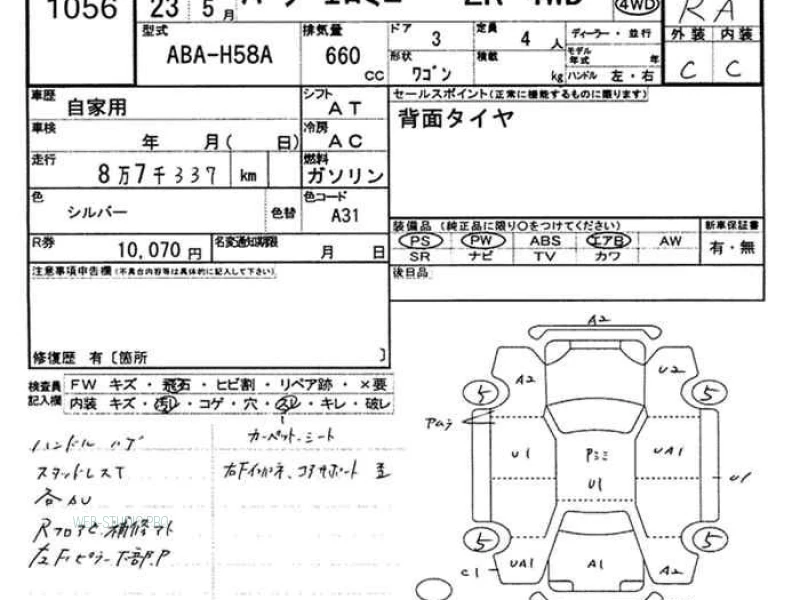 1056
23 5月 4WD RA
型式 ABA-H58A 排気量 660 cc ドア 3 定員 4 人 ディーラー・並行 外装 内装
形状 ワゴン 積載 kg モデル年式 年 ハンドル 左・右 C C
車歴 自家用 シフト AT セールスポイント(正常に機能するものに限ります)
車検 年 月( 日) 冷房 AC 背面タイヤ
走行 8万7千337 km 燃料 ガソリン
色 シルバー 色替 色コード A31
装備品(純正品に限り○をつけてください) 新車保証書
R券 10,070 円 名変通知期限 月 日 PS PW ABS エアB AW 有・無
SR ナビ TV カワ
注意事項申告欄(不具合内容等は具体的に記入して下さい) 後日品
修復歴 有〔箇所 〕
検査員記入欄 FW キズ・飛石・ヒビ割・リペア跡・×要
内装 キズ・汚レ・コゲ・穴・スレ・キレ・破レ
カーペット、シート
ハンドル ハゲ
スタッドレスT
各AU
WEB-STUDIO.PRO
A2
A2 U2
5 5
U1 Pシミ UA1
U1 U1
5 5
C1 UA1 A1 A2